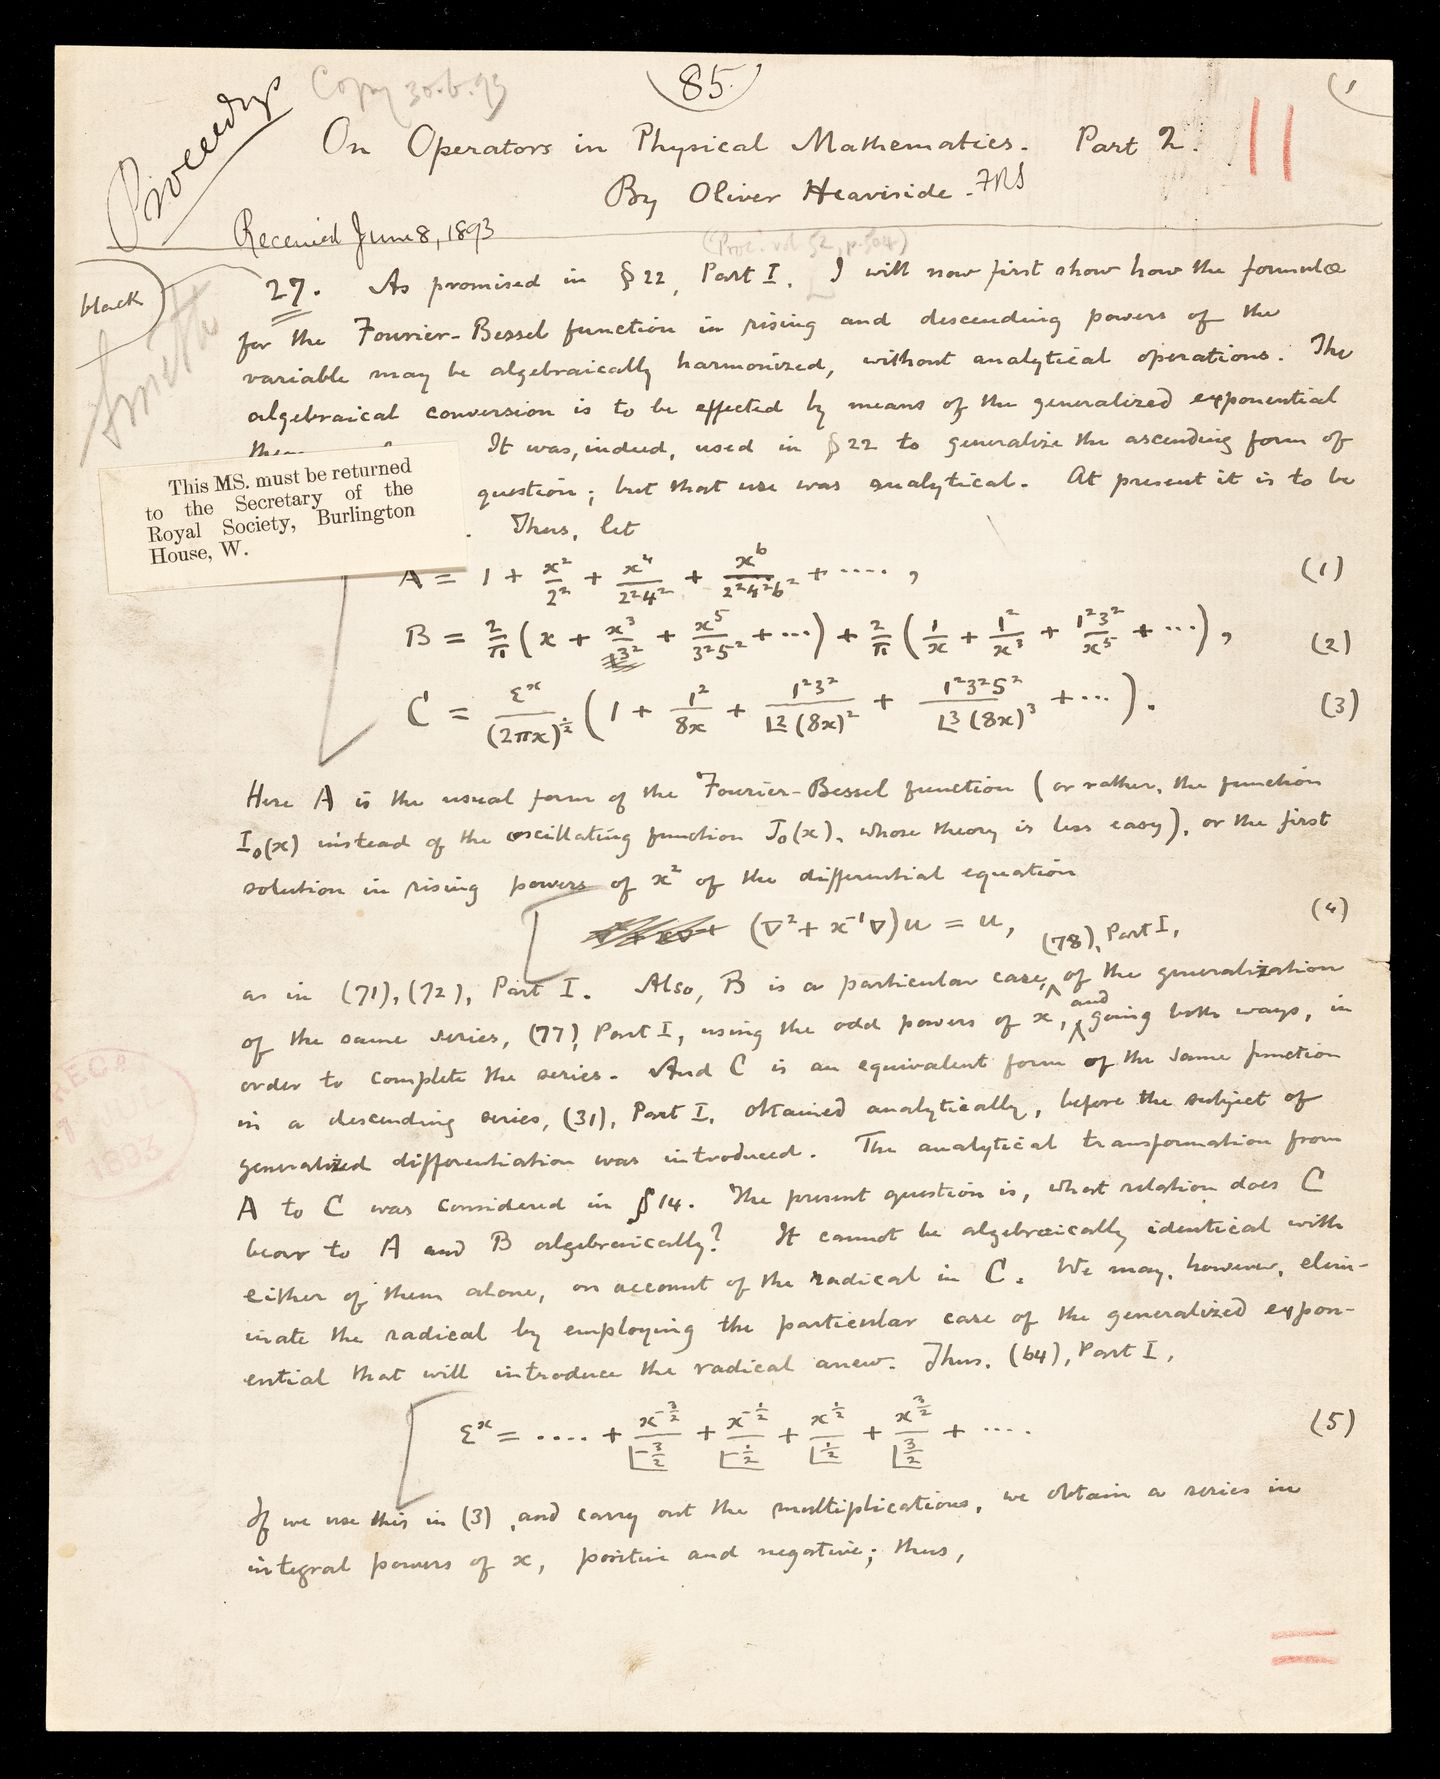 Proceedings
Copy 30.6.93
85
On Operators in Physical Mathematics. Part 2.
By Oliver Heaviside. FRS
Received June 8, 1893
(Proc. vol. 52, p. 504)
black
27. As promised in § 22, Part I, I will now first show how the formulæ
for the Fourier-Bessel function in rising and descending powers of the
variable may be algebraically harmonized, without analytical operations. The
algebraical conversion is to be effected by means of the generalized exponential
It was, indeed, used in § 22 to generalize the ascending form of
question; but that use was analytical. At present it is to be
Thus, let
This MS. must be returned
to the Secretary of the
Royal Society, Burlington
House, W.
A = 1 + x²/2² + x⁴/2²4² + x⁶/2²4²6² + ···· , (1)
B = 2/π (x + x³/3² + x⁵/3²5² + ···) + 2/π (1/x + 1²/x³ + 1²3²/x⁵ + ···), (2)
C = ε^x/(2πx)^½ (1 + 1²/8x + 1²3²/⌊2(8x)² + 1²3²5²/⌊3(8x)³ + ···). (3)
Here A is the usual form of the Fourier-Bessel function (or rather, the function
I₀(x) instead of the oscillating function J₀(x), whose theory is less easy), or the first
solution in rising powers of x² of the differential equation
(∇² + x⁻¹∇)u = u, (4)
(78), Part I,
as in (71), (72), Part I. Also, B is a particular case, of the generalization
of the same series, (77), Part I, using the odd powers of x, and going both ways, in
order to complete the series. And C is an equivalent form of the same function
in a descending series, (31), Part I, obtained analytically, before the subject of
generalized differentiation was introduced. The analytical transformation from
A to C was considered in § 14. The present question is, what relation does C
bear to A and B algebraically? It cannot be algebraically identical with
either of them alone, on account of the radical in C. We may, however, elim-
inate the radical by employing the particular case of the generalized expon-
ential that will introduce the radical anew. Thus, (64), Part I,
ε^x = ···· + x^(-3/2)/⌊-3/2 + x^(-1/2)/⌊-1/2 + x^(1/2)/⌊1/2 + x^(3/2)/⌊3/2 + ···· (5)
If we use this in (3), and carry out the multiplications, we obtain a series in
integral powers of x, positive and negative; thus,
REC^D
1893